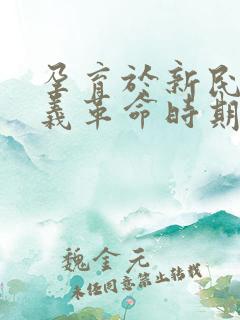 孕育於新民
義革命時期
魏金元
未经同意禁止转载